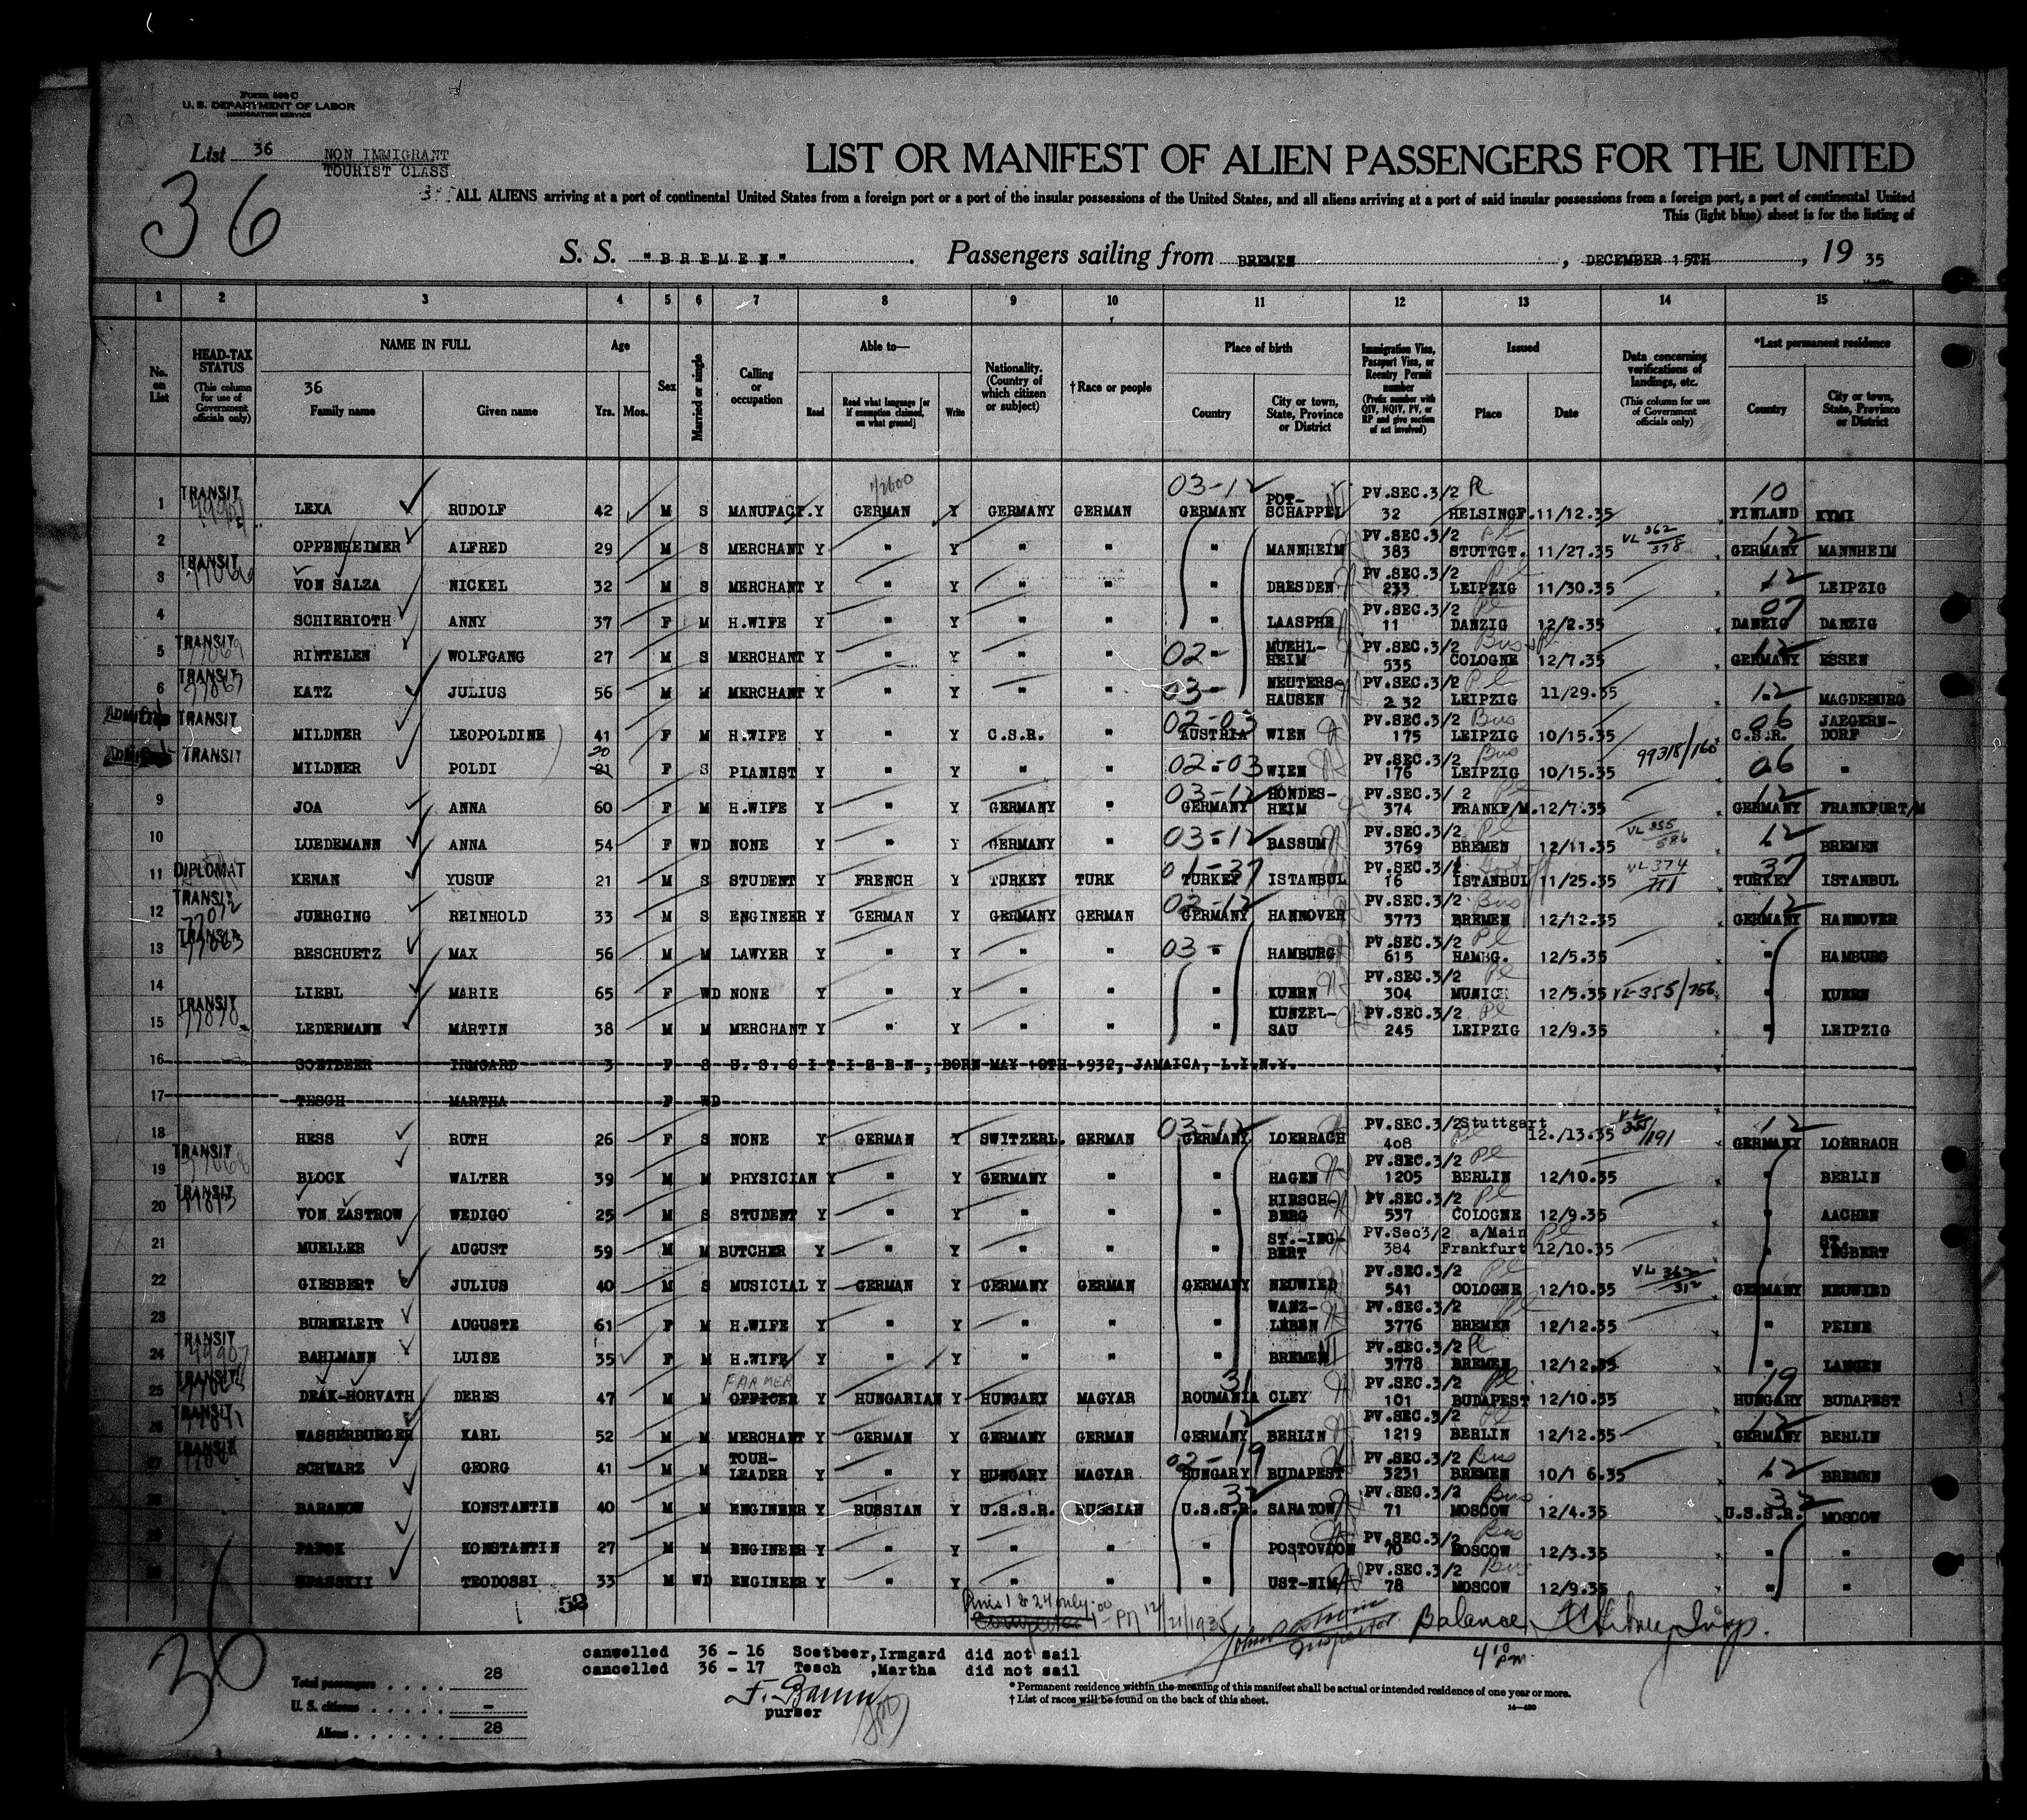 Form 500 C
U. S. DEPARTMENT OF LABOR
IMMIGRATION SERVICE
List 36
NON IMMIGRANT
TOURIST CLASS
36
LIST OR MANIFEST OF ALIEN PASSENGERS FOR THE UNITED
ALL ALIENS arriving at a port of continental United States from a foreign port or a port of the insular possessions of the United States, and all aliens arriving at a port of said insular possessions from a foreign port, a port of continental United
This (light blue) sheet is for the listing of
S. S. "BREMEN". Passengers sailing from BREMEN, DECEMBER 15TH, 19 35
1 2 3 4 5 6 7 8 9 10 11 12 13 14 15
No. on List
HEAD-TAX STATUS (This column for use of Government officials only)
NAME IN FULL
36
Family name Given name
Age
Yrs. Mos.
Sex
Married or single
Calling or occupation
Able to—
Read Read what language [or if exemption claimed, on what ground] Write
Nationality. (Country of which citizen or subject)
† Race or people
Place of birth
Country City or town, State, Province or District
Immigration Visa, Passport Visa, or Reentry Permit number (Prefix number with QIV, NQIV, PV, or RP and give section of act involved)
Issued
Place Date
Data concerning verifications of landings, etc. (This column for use of Government officials only)
*Last permanent residence
Country City or town, State, Province or District
1 TRANSIT LEXA RUDOLF 42 M S MANUFACT. Y GERMAN Y GERMANY GERMAN 03-12 GERMANY POT-SCHAPPEL PV.SEC.3/2 32 HELSINGF. 11/12.35 10 FINLAND KYMI
2 OPPENHEIMER ALFRED 29 M S MERCHANT Y " Y " " " MANNHEIM PV.SEC.3/2 383 STUTTGT. 11/27.35 VL 362/378 12 GERMANY MANNHEIM
3 TRANSIT VON SALZA NICKEL 32 M S MERCHANT Y " Y " " " DRESDEN PV.SEC.3/2 233 LEIPZIG 11/30.35 12 " LEIPZIG
4 SCHIERIOTH ANNY 37 F M H.WIFE Y " Y " " " LAASPHE PV.SEC.3/2 11 DANZIG 12/2.35 07 DANZIG DANZIG
5 TRANSIT RINTELEN WOLFGANG 27 M S MERCHANT Y " Y " " 02- " MUEHL-HEIM PV.SEC.3/2 535 COLOGNE 12/7.35 12 GERMANY ESSEN
6 TRANSIT KATZ JULIUS 56 M M MERCHANT Y " Y " " 03- " NEUTERS-HAUSEN PV.SEC.3/2 232 LEIPZIG 11/29.35 12 " MAGDEBURG
TRANSIT MILDNER LEOPOLDINE 41 F M H.WIFE Y " Y C.S.R. " 02-03 AUSTRIA WIEN PV.SEC.3/2 Bus 175 LEIPZIG 10/15.35 06 C.S.R. JAEGERN-DORF
TRANSIT MILDNER POLDI 20 21 F S PIANIST Y " Y " " 02-03 " WIEN PV.SEC.3/2 Bus 176 LEIPZIG 10/15.35 99318/160 06 "
9 JOA ANNA 60 F M H.WIFE Y " Y GERMANY " 03-12 GERMANY HONDES-HEIM PV.SEC./ 2 374 FRANKF/M. 12/7.35 12 GERMANY FRANKFURT/M
10 LUEDEMANN ANNA 54 F WD NONE Y " Y GERMANY " 03-12 " BASSUM PV.SEC.3/2 3769 BREMEN 12/11.35 VL 355/586 12 " BREMEN
11 DIPLOMAT KENAN YUSUF 21 M S STUDENT Y FRENCH Y TURKEY TURK 01-37 TURKEY ISTANBUL PV.SEC.3/2 16 ISTANBUL 11/25.35 VL 374/111 37 TURKEY ISTANBUL
12 TRANSIT JUERGING REINHOLD 33 M S ENGINEER Y GERMAN Y GERMANY GERMAN 02-12 GERMANY HANNOVER PV.SEC.3/2 Bus 3773 BREMEN 12/12.35 12 GERMANY HANNOVER
13 TRANSIT BESCHUETZ MAX 56 M M LAWYER Y " Y " " 03- " HAMBURG PV.SEC.3/2 615 HAMBG. 12/5.35 " HAMBURG
14 LIEBL MARIE 65 F WD NONE Y " Y " " " KUERN PV.SEC.3/2 304 MUNICH 12/5.35 VL-355/756 " KUERN
15 TRANSIT LEDERMANN MARTIN 38 M M MERCHANT Y " Y " " " KUNZEL-SAU PV.SEC.3/2 245 LEIPZIG 12/9.35 " LEIPZIG
16 SOETBEER IRMGARD 3 F S U.S.CITIZEN, BORN MAY 18TH 1932, JAMAICA, L.I.N.Y.
17 TESCH MARTHA F WD
18 HESS RUTH 26 F S NONE Y GERMAN Y SWITZERL. GERMAN 03-12 GERMANY LOERRACH PV.SEC.3/2 408 Stuttgart 12./13.35 VL 355/191 12 GERMANY LOERRACH
19 TRANSIT BLOCK WALTER 39 M M PHYSICIAN Y " Y GERMANY " " HAGEN PV.SEC.3/2 1205 BERLIN 12/10.35 " BERLIN
20 TRANSIT VON ZASTROW WEDIGO 25 M S STUDENT Y " Y " " " HIRSCH-BERG PV.SEC.3/2 537 COLOGNE 12/9.35 " AACHEN
21 MUELLER AUGUST 59 M M BUTCHER Y " Y " " " ST.-ING-BERT PV.Sec3/2 384 a/Main Frankfurt 12/10.35 " ST. INGBERT
22 GIESBERT JULIUS 40 M S MUSICIAL Y GERMAN Y GERMANY GERMAN GERMANY NEUWIED PV.SEC.3/2 541 COLOGNE 12/10.35 VL 362/312 GERMANY NEUWIED
23 BURNELEIT AUGUSTE 61 F M H.WIFE Y " Y " " " WANZ-LEBEN PV.SEC.3/2 3776 BREMEN 12/12.35 " PEINE
24 TRANSIT BAHLMANN LUISE 35 F M H.WIFE Y " Y " " " BREMEN PV.SEC.3/2 3778 BREMEN 12/12.35 " LANGEN
25 TRANSIT DEAK-HORVATH DERES 47 M M FARMER OFFICER Y HUNGARIAN Y HUNGARY MAGYAR 31 ROUMANIA CLEY PV.SEC.3/2 101 BUDAPEST 12/10.35 19 HUNGARY BUDAPEST
26 TRANSIT WASSERBURGER KARL 52 M M MERCHANT Y GERMAN Y GERMANY GERMAN 12 GERMANY BERLIN PV.SEC.3/2 1219 BERLIN 12/12.35 12 GERMANY BERLIN
27 TRANSIT SCHWARZ GEORG 41 M M TOUR-LEADER Y " Y HUNGARY MAGYAR 02-19 HUNGARY BUDAPEST PV.SEC.3/2 Bus 3231 BREMEN 10/1 6.35 12 " BREMEN
BARANOW KONSTANTIN 40 M M ENGINEER Y RUSSIAN Y U.S.S.R. RUSSIAN 32 U.S.S.R. SARATOW PV.SEC.3/2 Bus 71 MOSCOW 12/4.35 32 U.S.S.R. MOSCOW
KONSTANTIN 27 M M ENGINEER Y " Y " " " POSTOVDON PV.SEC.3/2 Bus 70 MOSCOW 12/3.35 " "
SPASSKII TEODOSSI 33 M WD ENGINEER Y " Y " " " UST-NIM PV.SEC.3/2 Bus 78 MOSCOW 12/9.35 " "
52
Lines 1 & 24 only
12/21/1935
Inspector
Balance
4 10 pm.
36
cancelled 36 - 16 Soetbeer,Irmgard did not sail
cancelled 36 - 17 Tesch ,Martha did not sail
purser
Total passengers 28
U. S. citizens -
Aliens 28
* Permanent residence within the meaning of this manifest shall be actual or intended residence of one year or more.
† List of races will be found on the back of this sheet.